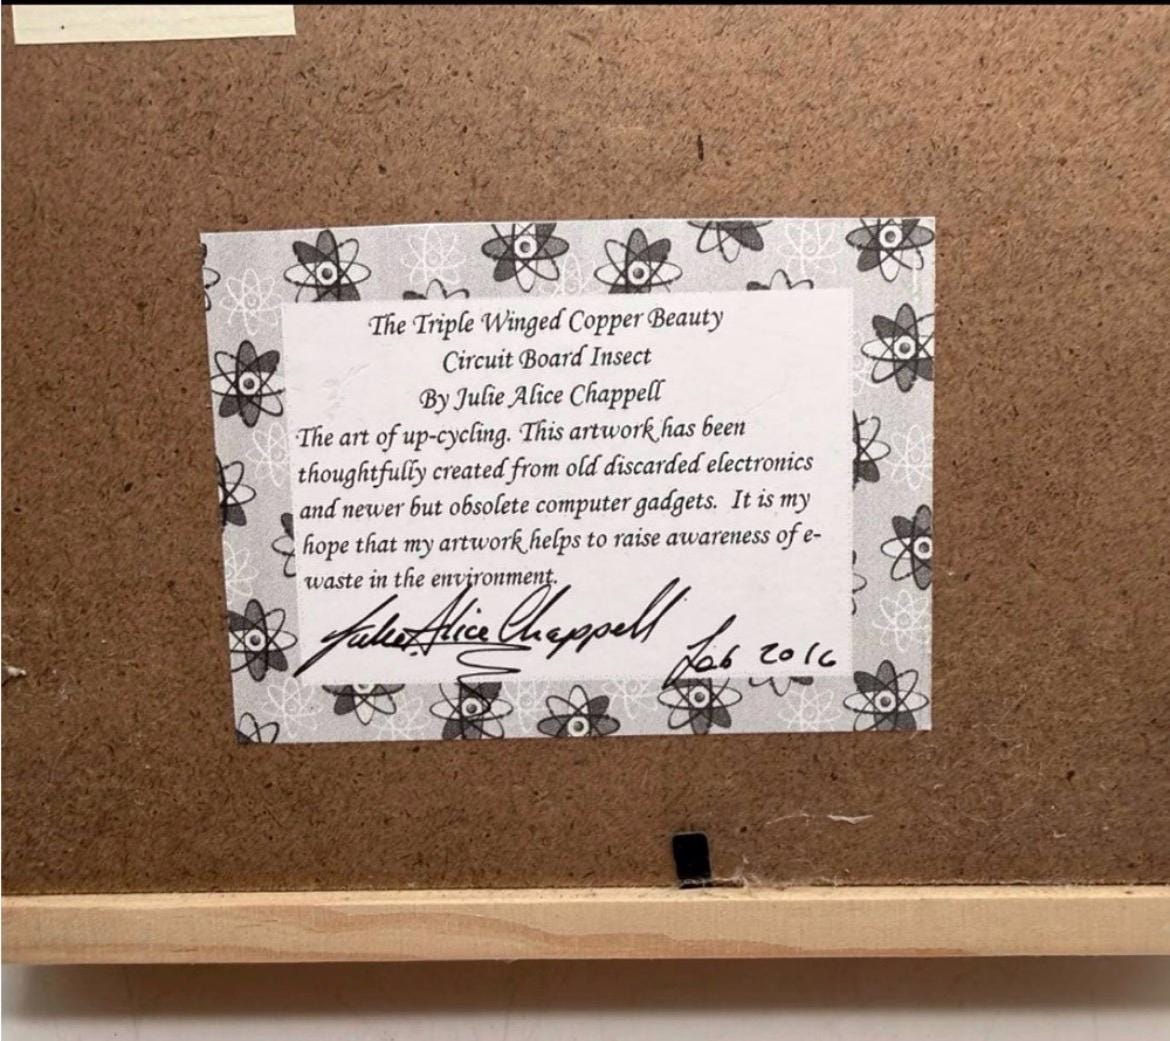 The Triple Winged Copper Beauty
Circuit Board Insect
By Julie Alice Chappell
The art of up-cycling. This artwork has been
thoughtfully created from old discarded electronics
and newer but obsolete computer gadgets. It is my
hope that my artwork helps to raise awareness of e-
waste in the environment.
Julie Alice Chappell Feb 2016